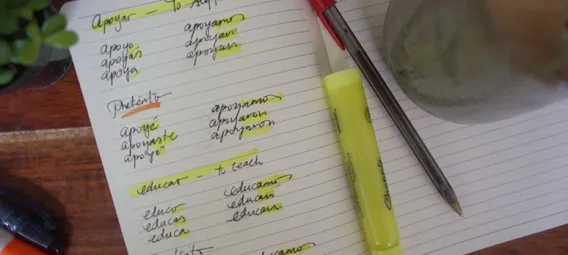 Apoyar – to
apoyo apoyamos
apoyas apoyan
apoya apoyan
Pretérito
apoyé apoyamos
apoyaste apoyaron
apoyó apoyaron
educar – to teach
educo educamos
educas educan
educa educan
educamos